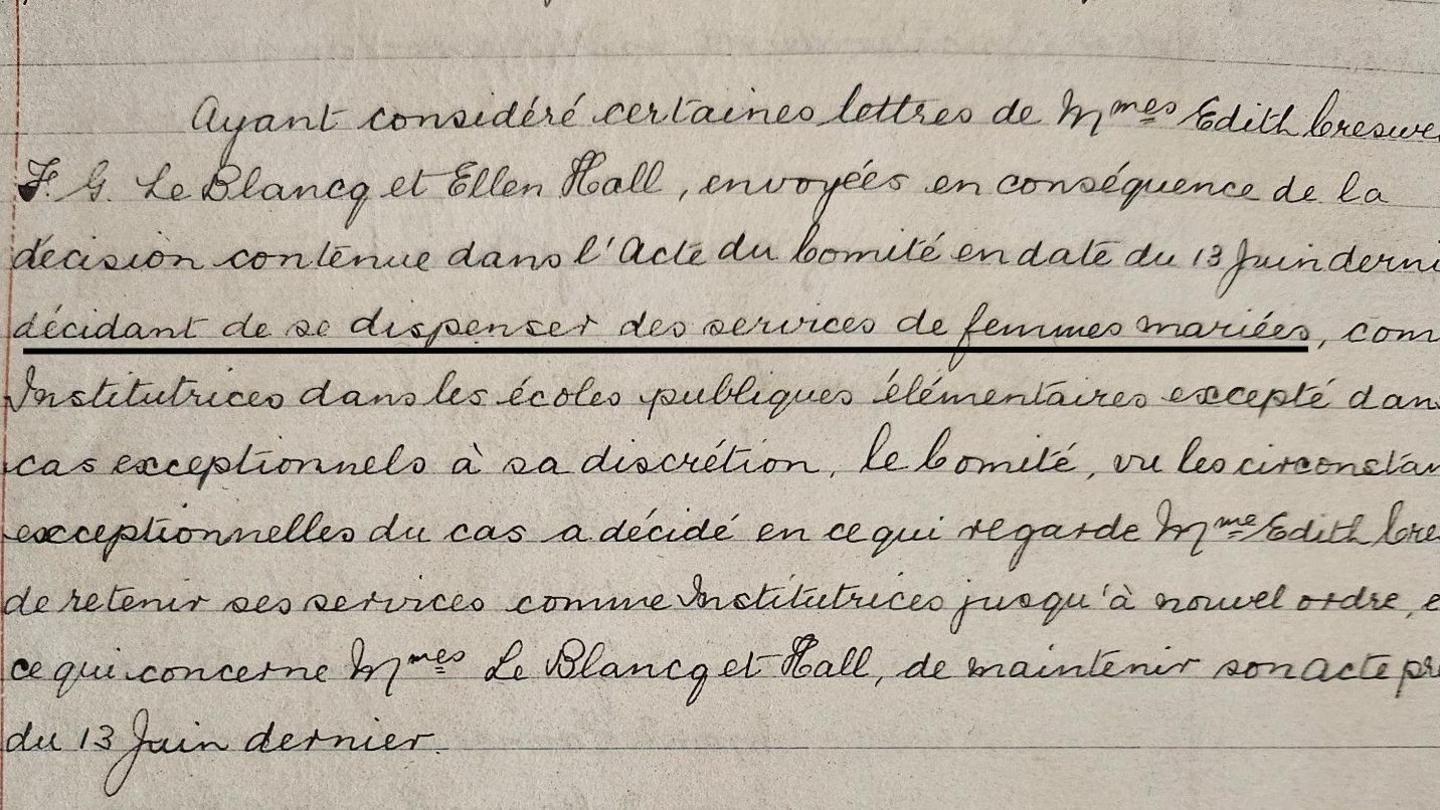 Ayant considéré certaines lettres de Mmes Edith Creswe
F. G. Le Blancq et Ellen Hall, envoyées en conséquence de la
décision contenue dans l'Acte du Comité en date du 13 Juin derni
décidant de se dispenser des services de femmes mariées, com
Institutrices dans les écoles publiques élémentaires excepté dans
cas exceptionnels à sa discrétion, le Comité, vu les circonstan
exceptionnelles du cas a décidé en ce qui regarde Mme Edith Cre
de retenir ses services comme Institutrices jusqu'à nouvel ordre, e
ce qui concerne Mmes Le Blancq et Hall, de maintenir son acte pré
du 13 Juin dernier.